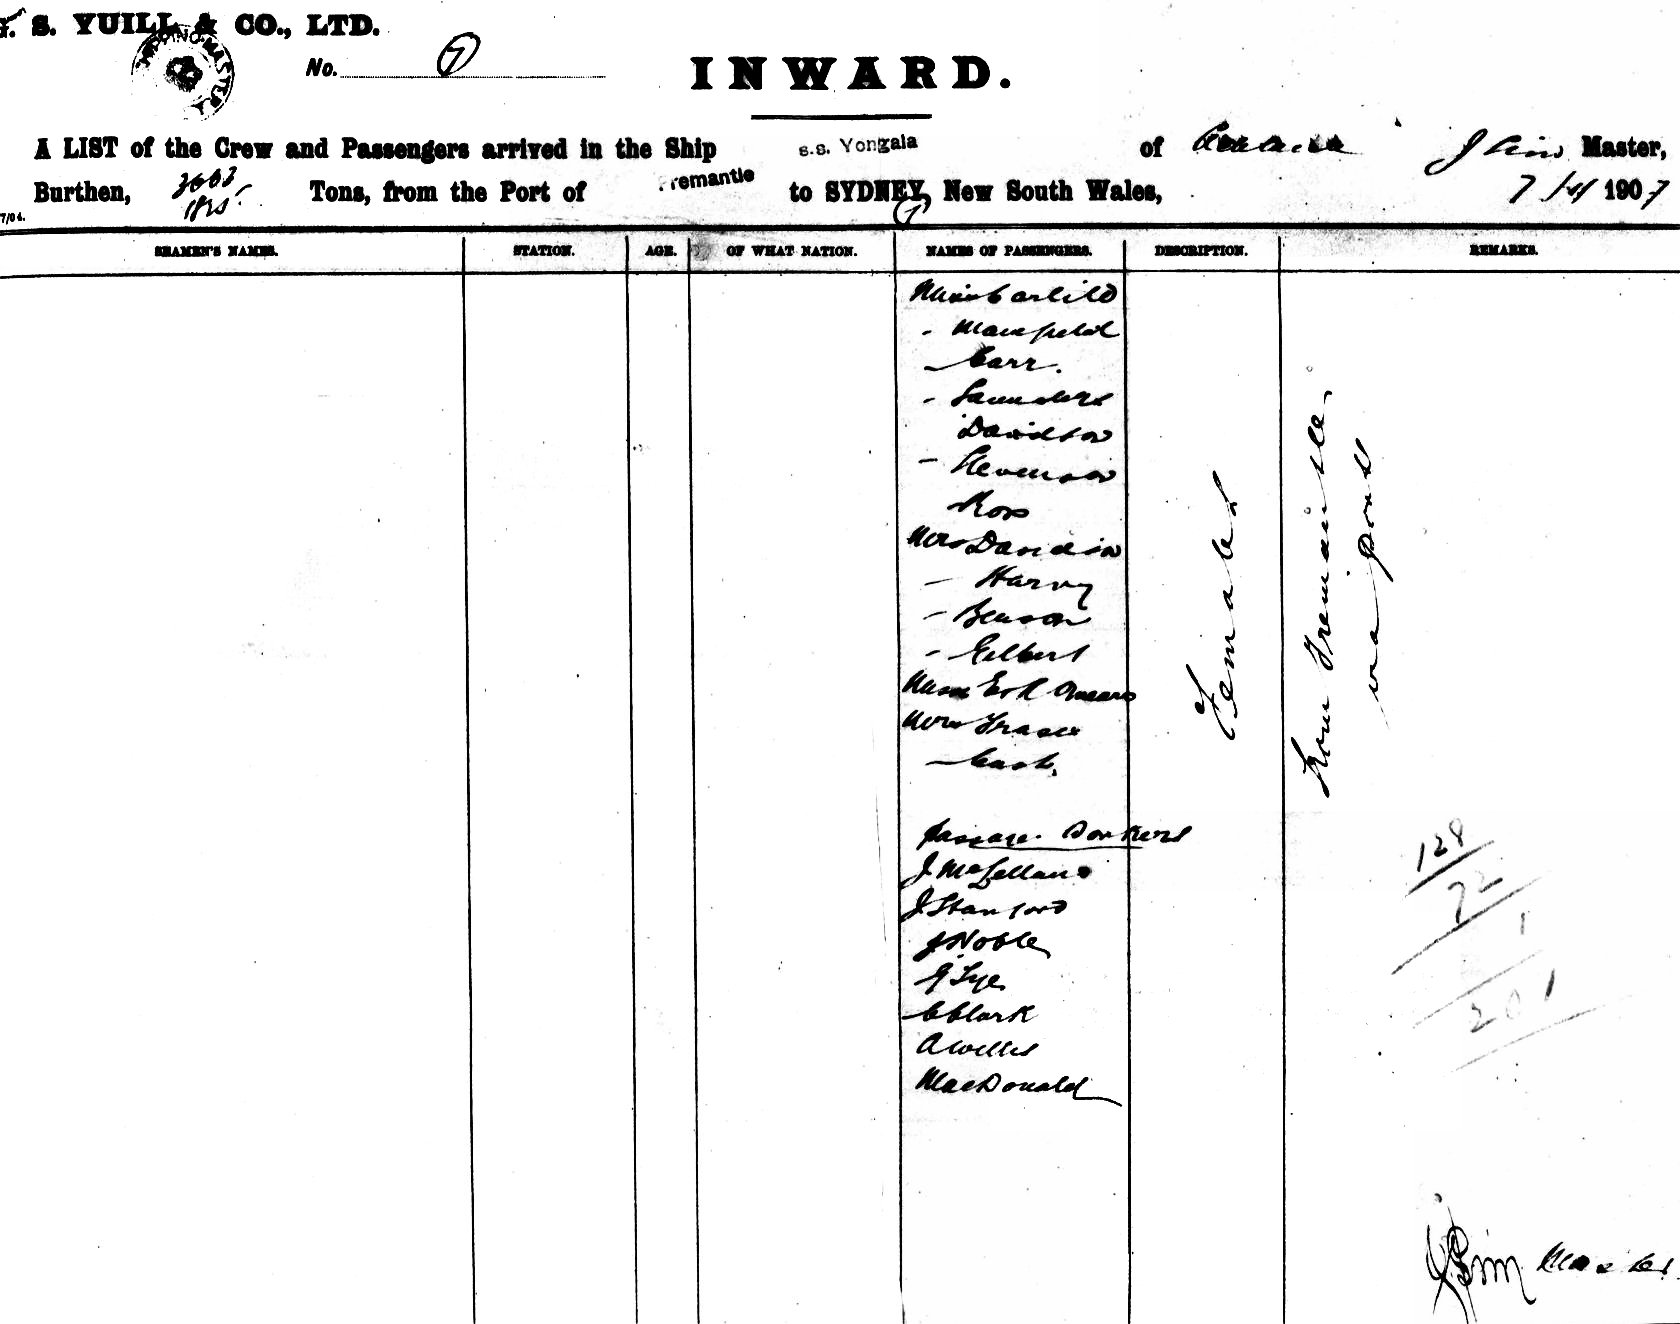 S. YUILL & CO., LTD.
SHIPPING MASTER
No. 7
INWARD.
A LIST of the Crew and Passengers arrived in the Ship s.s. Yongala of Adelaide J Sim Master,
Burthen, Tons, from the Port of Fremantle to SYDNEY, New South Wales, 1907
1825
7/04.
SEAMEN'S NAMES. STATION. AGE. OF WHAT NATION. NAMES OF PASSENGERS. DESCRIPTION. REMARKS.
Miss
- Mansfield
- Carr.
- Saunders
Davidson
- Stevenson
Ross
Mrs Davidson
- Harvy
- Benson
- Gilbert
Mrs Fraser
- Cash.
Females
From Fremantle
via ports
Passage Workers
J McLelland
J Stanford
J Noble
G Lye
C Clark
A Willis
MacDonald
128
72
1
201
J Sim Master